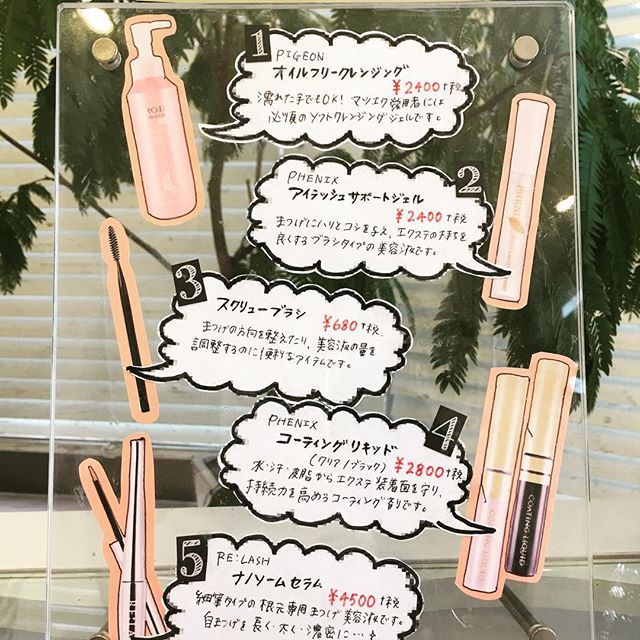 1 PIGEON
オイルフリークレンジング
¥2400+税
濡れた手でもOK! マツエク愛用者には
必須のソフトクレンジングジェルです。
2
PHENIX
アイラッシュサポートジェル
¥2400+税
まつげにハリとコシを与え、エクステの持ちを
良くするブラシタイプの美容液です。
PHENIX
3
スクリューブラシ
¥680+税
まつげの方向を整えたり、美容液の量を
調整するのに便利なアイテムです。
4
PHENIX
コーティングリキッド
(クリア/ブラック) ¥2800+税
水・汗・皮脂からエクステ装着面を守り、
持続力を高めるコーティング剤です。
COATING LIQUID
COATING LIQUID
5 RE:LASH
ナノソームセラム
¥4500+税
細筆タイプの根元専用まつげ美容液です。
自まつげを長く・太く・濃密に…